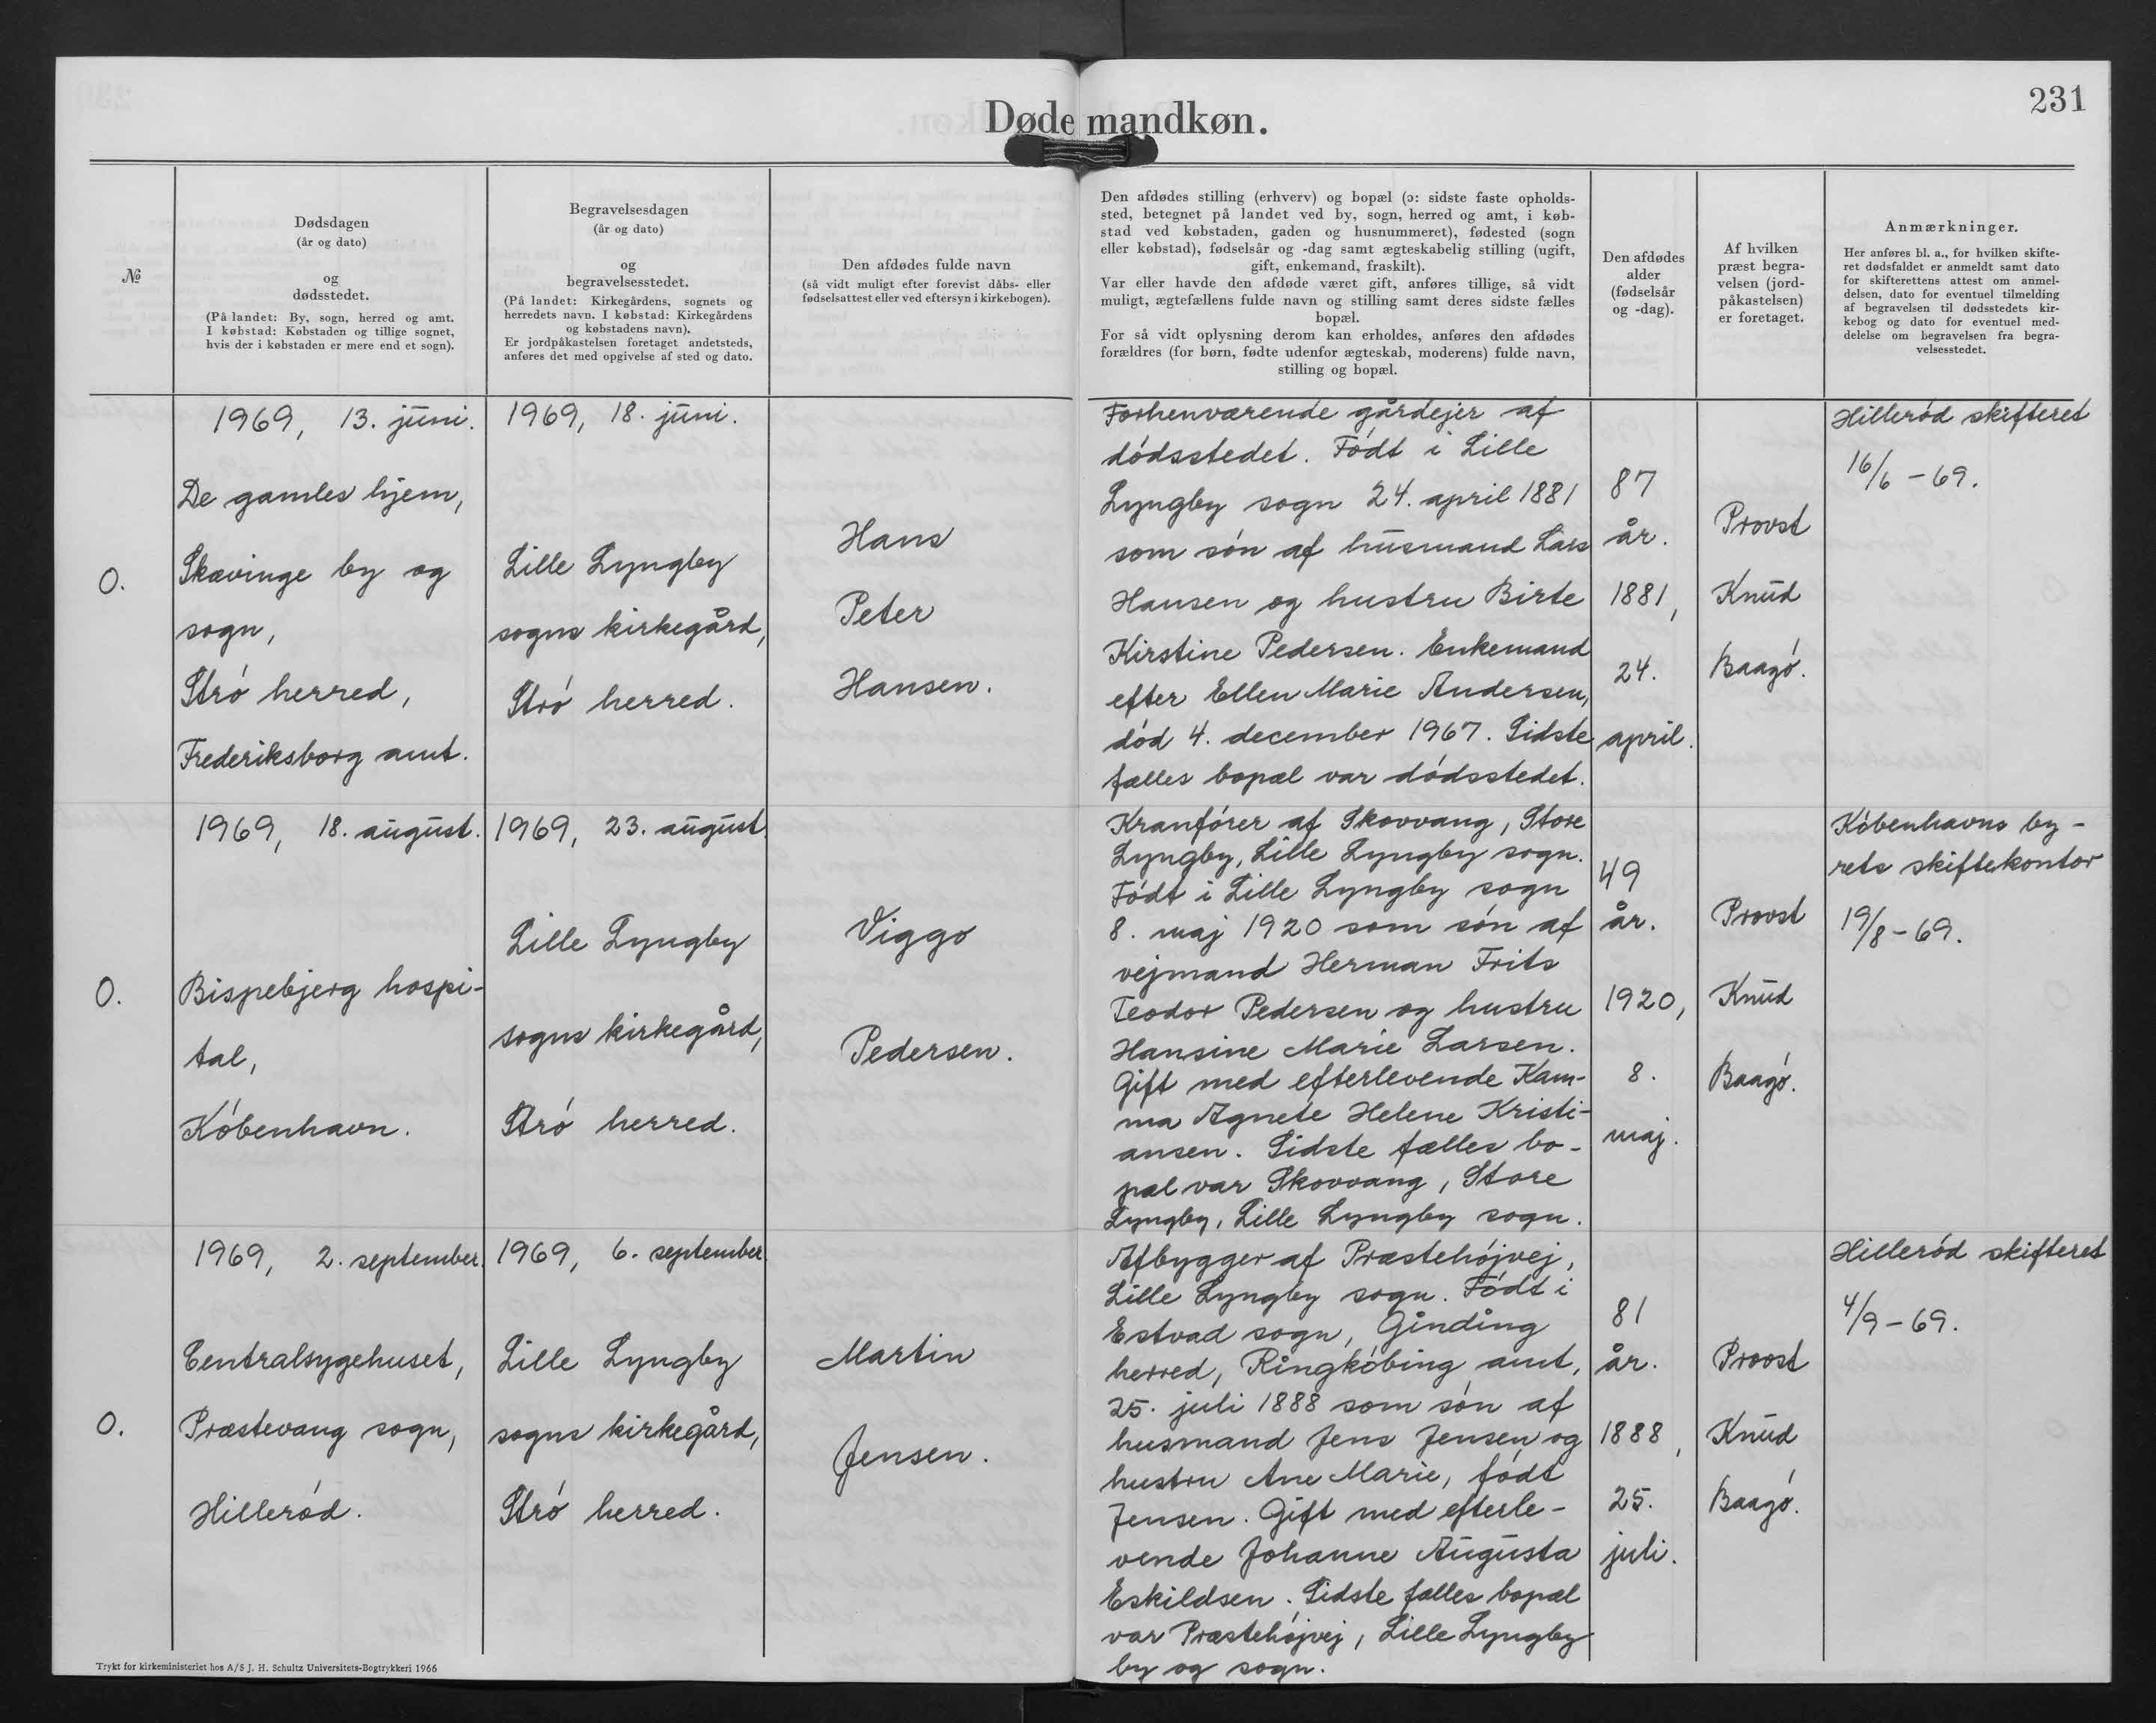 231
Døde mandkøn.
№
Dødsdagen
(år og dato)
og
dødsstedet.
(På landet: By, sogn, herred og amt.
I købstad: Købstaden og tillige sognet,
hvis der i købstaden er mere end et sogn).
Begravelsesdagen
(år og dato)
og
begravelsesstedet.
(På landet: Kirkegårdens, sognets og
herredets navn. I købstad: Kirkegårdens
og købstadens navn).
Er jordpåkastelsen foretaget andetsteds,
anføres det med opgivelse af sted og dato.
Den afdødes fulde navn
(så vidt muligt efter forevist dåbs- eller
fødselsattest eller ved eftersyn i kirkebogen).
Den afdødes stilling (erhverv) og bopæl (ɔ: sidste faste opholds-
sted, betegnet på landet ved by, sogn, herred og amt, i køb-
stad ved købstaden, gaden og husnummeret), fødested (sogn
eller købstad), fødselsår og -dag samt ægteskabelig stilling (ugift,
gift, enkemand, fraskilt).
Var eller havde den afdøde været gift, anføres tillige, så vidt
muligt, ægtefællens fulde navn og stilling samt deres sidste fælles
bopæl.
For så vidt oplysning derom kan erholdes, anføres den afdødes
forældres (for børn, fødte udenfor ægteskab, moderens) fulde navn,
stilling og bopæl.
Den afdødes
alder
(fødselsår
og -dag).
Af hvilken
præst begra-
velsen (jord-
påkastelsen)
er foretaget.
Anmærkninger.
Her anføres bl. a., for hvilken skifte-
ret dødsfaldet er anmeldt samt dato
for skifterettens attest om anmel-
delsen, dato for eventuel tilmelding
af begravelsen til dødsstedets kir-
kebog og dato for eventuel med-
delelse om begravelsen fra begra-
velsesstedet.
0.
1969, 13. juni.
De gamles hjem,
Skævinge by og
sogn,
Strø herred,
Frederiksborg amt.
1969, 18. juni.
Lille Lyngby
sogns kirkegård,
Strø herred.
Hans
Peter
Hansen.
Forhenværende gårdejer af
dødsstedet. Født i Lille
Lyngby sogn 24. april 1881
som søn af husmand Lars
Hansen og hustru Birte
Kirstine Pedersen. Enkemand
efter Ellen Marie Andersen,
død 4. december 1967. Sidste
fælles bopæl var dødsstedet.
87
år.
1881,
24.
april.
Provst
Knud
Baagø.
Hillerød skifteret
16/6 - 69.
0.
1969, 18. august.
Bispebjerg hospi-
tal,
København.
1969, 23. august.
Lille Lyngby
sogns kirkegård,
Strø herred.
Viggo
Pedersen.
Kranfører af Skovvang, Store
Lyngby, Lille Lyngby sogn.
Født i Lille Lyngby sogn
8. maj 1920 som søn af
vejmand Herman Frits
Teodor Pedersen og hustru
Hansine Marie Larsen.
Gift med efterlevende Kam-
ma Agnete Helene Kristi-
ansen. Sidste fælles bo-
pæl var Skovvang, Store
Lyngby, Lille Lyngby sogn.
49
år.
1920,
8.
maj.
Provst
Knud
Baagø.
Københavns by-
rets skiftekontor
19/8 - 69.
0.
1969, 2. september.
Centralsygehuset,
Præstevang sogn,
Hillerød.
1969, 6. september.
Lille Lyngby
sogns kirkegård,
Strø herred.
Martin
Jensen.
Afbygger af Præstehøjvej,
Lille Lyngby sogn. Født i
Estvad sogn, Ginding
herred, Ringkøbing amt,
25. juli 1888 som søn af
husmand Jens Jensen og
hustru Ane Marie, født
Jensen. Gift med efterle-
vende Johanne Augusta
Eskildsen. Sidste fælles bopæl
var Præstehøjvej, Lille Lyngby
by og sogn.
81
år.
1888,
25.
juli.
Provst
Knud
Baagø.
Hillerød skifteret
4/9 - 69.
Trykt for kirkeministeriet hos A/S J. H. Schultz Universitets-Bogtrykkeri 1966